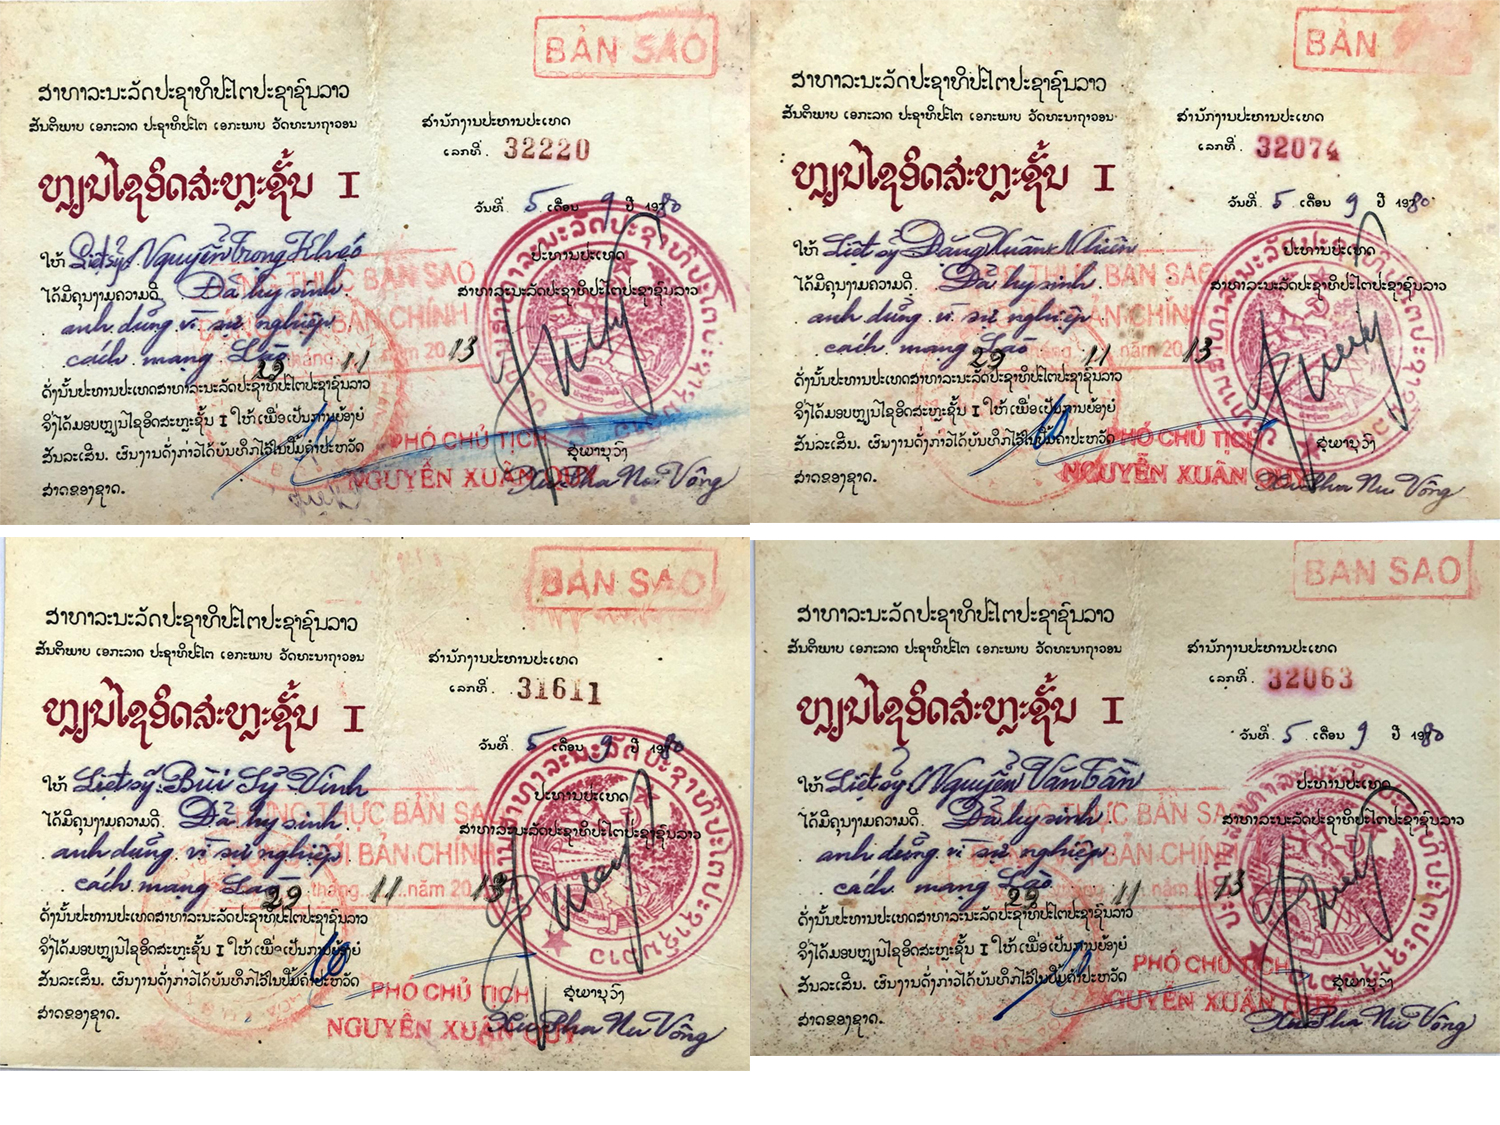 BẢN SAO
ສາທາລະນະລັດປະຊາທິປະໄຕປະຊາຊົນລາວ
ສັນຕິພາບ ເອກະລາດ ປະຊາທິປະໄຕ ເອກະພາບ ວັດທະນາຖາວອນ
ສຳນັກງານປະທານປະເທດ
ເລກທີ່. 32220
ຫຼຽນໄຊອິດສະຫຼະຊັ້ນ I
ວັນທີ່ 5 ເດືອນ 9 ປີ 1980
ໃຫ້ Liệt sỹ Nguyễn Trọng Khéo
ປະທານປະເທດ
ໄດ້ມີຄຸນງາມຄວາມດີ. Đã hy sinh
ສາທາລະນະລັດປະຊາທິປະໄຕປະຊາຊົນລາວ
anh dũng vì sự nghiệp
cách mạng Lào
THỰC BẢN SAO
BẢN CHÍNH
29 tháng 11 năm 2013
ດັ່ງນັ້ນປະທານປະເທດສາທາລະນະລັດປະຊາທິປະໄຕປະຊາຊົນລາວ
ຈຶ່ງໄດ້ມອບຫຼຽນໄຊອິດສະຫຼະຊັ້ນ I ໃຫ້ ເພື່ອເປັນການຍ້ອງຍໍ
ສັນລະເສີນ. ຜົນງານດັ່ງກ່າວໄດ້ບັນທຶກໄວ້ໃນປຶ້ມຄຳປະຫວັດ
ສາດຂອງຊາດ.
PHÓ CHỦ TỊCH
ສຸພານຸວົງ
NGUYỄN XUÂN QUÝ
Xu Pha Nu Vông
BẢN
ສາທາລະນະລັດປະຊາທິປະໄຕປະຊາຊົນລາວ
ສັນຕິພາບ ເອກະລາດ ປະຊາທິປະໄຕ ເອກະພາບ ວັດທະນາຖາວອນ
ສຳນັກງານປະທານປະເທດ
ເລກທີ່. 32074
ຫຼຽນໄຊອິດສະຫຼະຊັ້ນ I
ວັນທີ່ 5 ເດືອນ 9 ປີ 1980
ໃຫ້ Liệt sỹ Đặng Xuân Nhiên
ປະທານປະເທດ
ໄດ້ມີຄຸນງາມຄວາມດີ. Đã hy sinh
ສາທາລະນະລັດປະຊາທິປະໄຕປະຊາຊົນລາວ
anh dũng vì sự nghiệp
cách mạng Lào
THỰC BẢN SAO
BẢN CHÍNH
29 tháng 11 năm 2013
ດັ່ງນັ້ນປະທານປະເທດສາທາລະນະລັດປະຊາທິປະໄຕປະຊາຊົນລາວ
ຈຶ່ງໄດ້ມອບຫຼຽນໄຊອິດສະຫຼະຊັ້ນ I ໃຫ້ ເພື່ອເປັນການຍ້ອງຍໍ
ສັນລະເສີນ. ຜົນງານດັ່ງກ່າວໄດ້ບັນທຶກໄວ້ໃນປຶ້ມຄຳປະຫວັດ
ສາດຂອງຊາດ.
PHÓ CHỦ TỊCH
ສຸພານຸວົງ
NGUYỄN XUÂN QUÝ
Xu Pha Nu Vông
BẢN SAO
ສາທາລະນະລັດປະຊາທິປະໄຕປະຊາຊົນລາວ
ສັນຕິພາບ ເອກະລາດ ປະຊາທິປະໄຕ ເອກະພາບ ວັດທະນາຖາວອນ
ສຳນັກງານປະທານປະເທດ
ເລກທີ່. 31611
ຫຼຽນໄຊອິດສະຫຼະຊັ້ນ I
ວັນທີ່. 5 ເດືອນ 9 ປີ 1980
ໃຫ້ Liệt sỹ Bùi Sỹ Vinh
ປະທານປະເທດ
ໄດ້ມີຄຸນງາມຄວາມດີ. Đã hy sinh
ສາທາລະນະລັດປະຊາທິປະໄຕປະຊາຊົນລາວ
anh dũng vì sự nghiệp
cách mạng Lào
THỰC BẢN SAO
BẢN CHÍNH
29 tháng 11 năm 2013
ດັ່ງນັ້ນປະທານປະເທດສາທາລະນະລັດປະຊາທິປະໄຕປະຊາຊົນລາວ
ຈຶ່ງໄດ້ມອບຫຼຽນໄຊອິດສະຫຼະຊັ້ນ I ໃຫ້ ເພື່ອເປັນການຍ້ອງຍໍ
ສັນລະເສີນ. ຜົນງານດັ່ງກ່າວໄດ້ບັນທຶກໄວ້ໃນປຶ້ມຄຳປະຫວັດ
ສາດຂອງຊາດ.
PHÓ CHỦ TỊCH
ສຸພານຸວົງ
NGUYỄN XUÂN QUÝ
Xu Pha Nu Vông
BẢN SAO
ສາທາລະນະລັດປະຊາທິປະໄຕປະຊາຊົນລາວ
ສັນຕິພາບ ເອກະລາດ ປະຊາທິປະໄຕ ເອກະພາບ ວັດທະນາຖາວອນ
ສຳນັກງານປະທານປະເທດ
ເລກທີ່. 32063
ຫຼຽນໄຊອິດສະຫຼະຊັ້ນ I
ວັນທີ່. 5 ເດືອນ 9 ປີ 1980
ໃຫ້ Liệt sỹ Nguyễn Văn Tần
ປະທານປະເທດ
ໄດ້ມີຄຸນງາມຄວາມດີ. Đã hy sinh
ສາທາລະນະລັດປະຊາທິປະໄຕປະຊາຊົນລາວ
anh dũng vì sự nghiệp
cách mạng Lào
THỰC BẢN SAO
BẢN CHÍNH
29 tháng 11 năm 2013
ດັ່ງນັ້ນປະທານປະເທດສາທາລະນະລັດປະຊາທິປະໄຕປະຊາຊົນລາວ
ຈຶ່ງໄດ້ມອບຫຼຽນໄຊອິດສະຫຼະຊັ້ນ I ໃຫ້ ເພື່ອເປັນການຍ້ອງຍໍ
ສັນລະເສີນ. ຜົນງານດັ່ງກ່າວໄດ້ບັນທຶກໄວ້ໃນປຶ້ມຄຳປະຫວັດ
ສາດຂອງຊາດ.
PHÓ CHỦ TỊCH
ສຸພານຸວົງ
NGUYỄN XUÂN QUÝ
Xu Pha Nu Vông